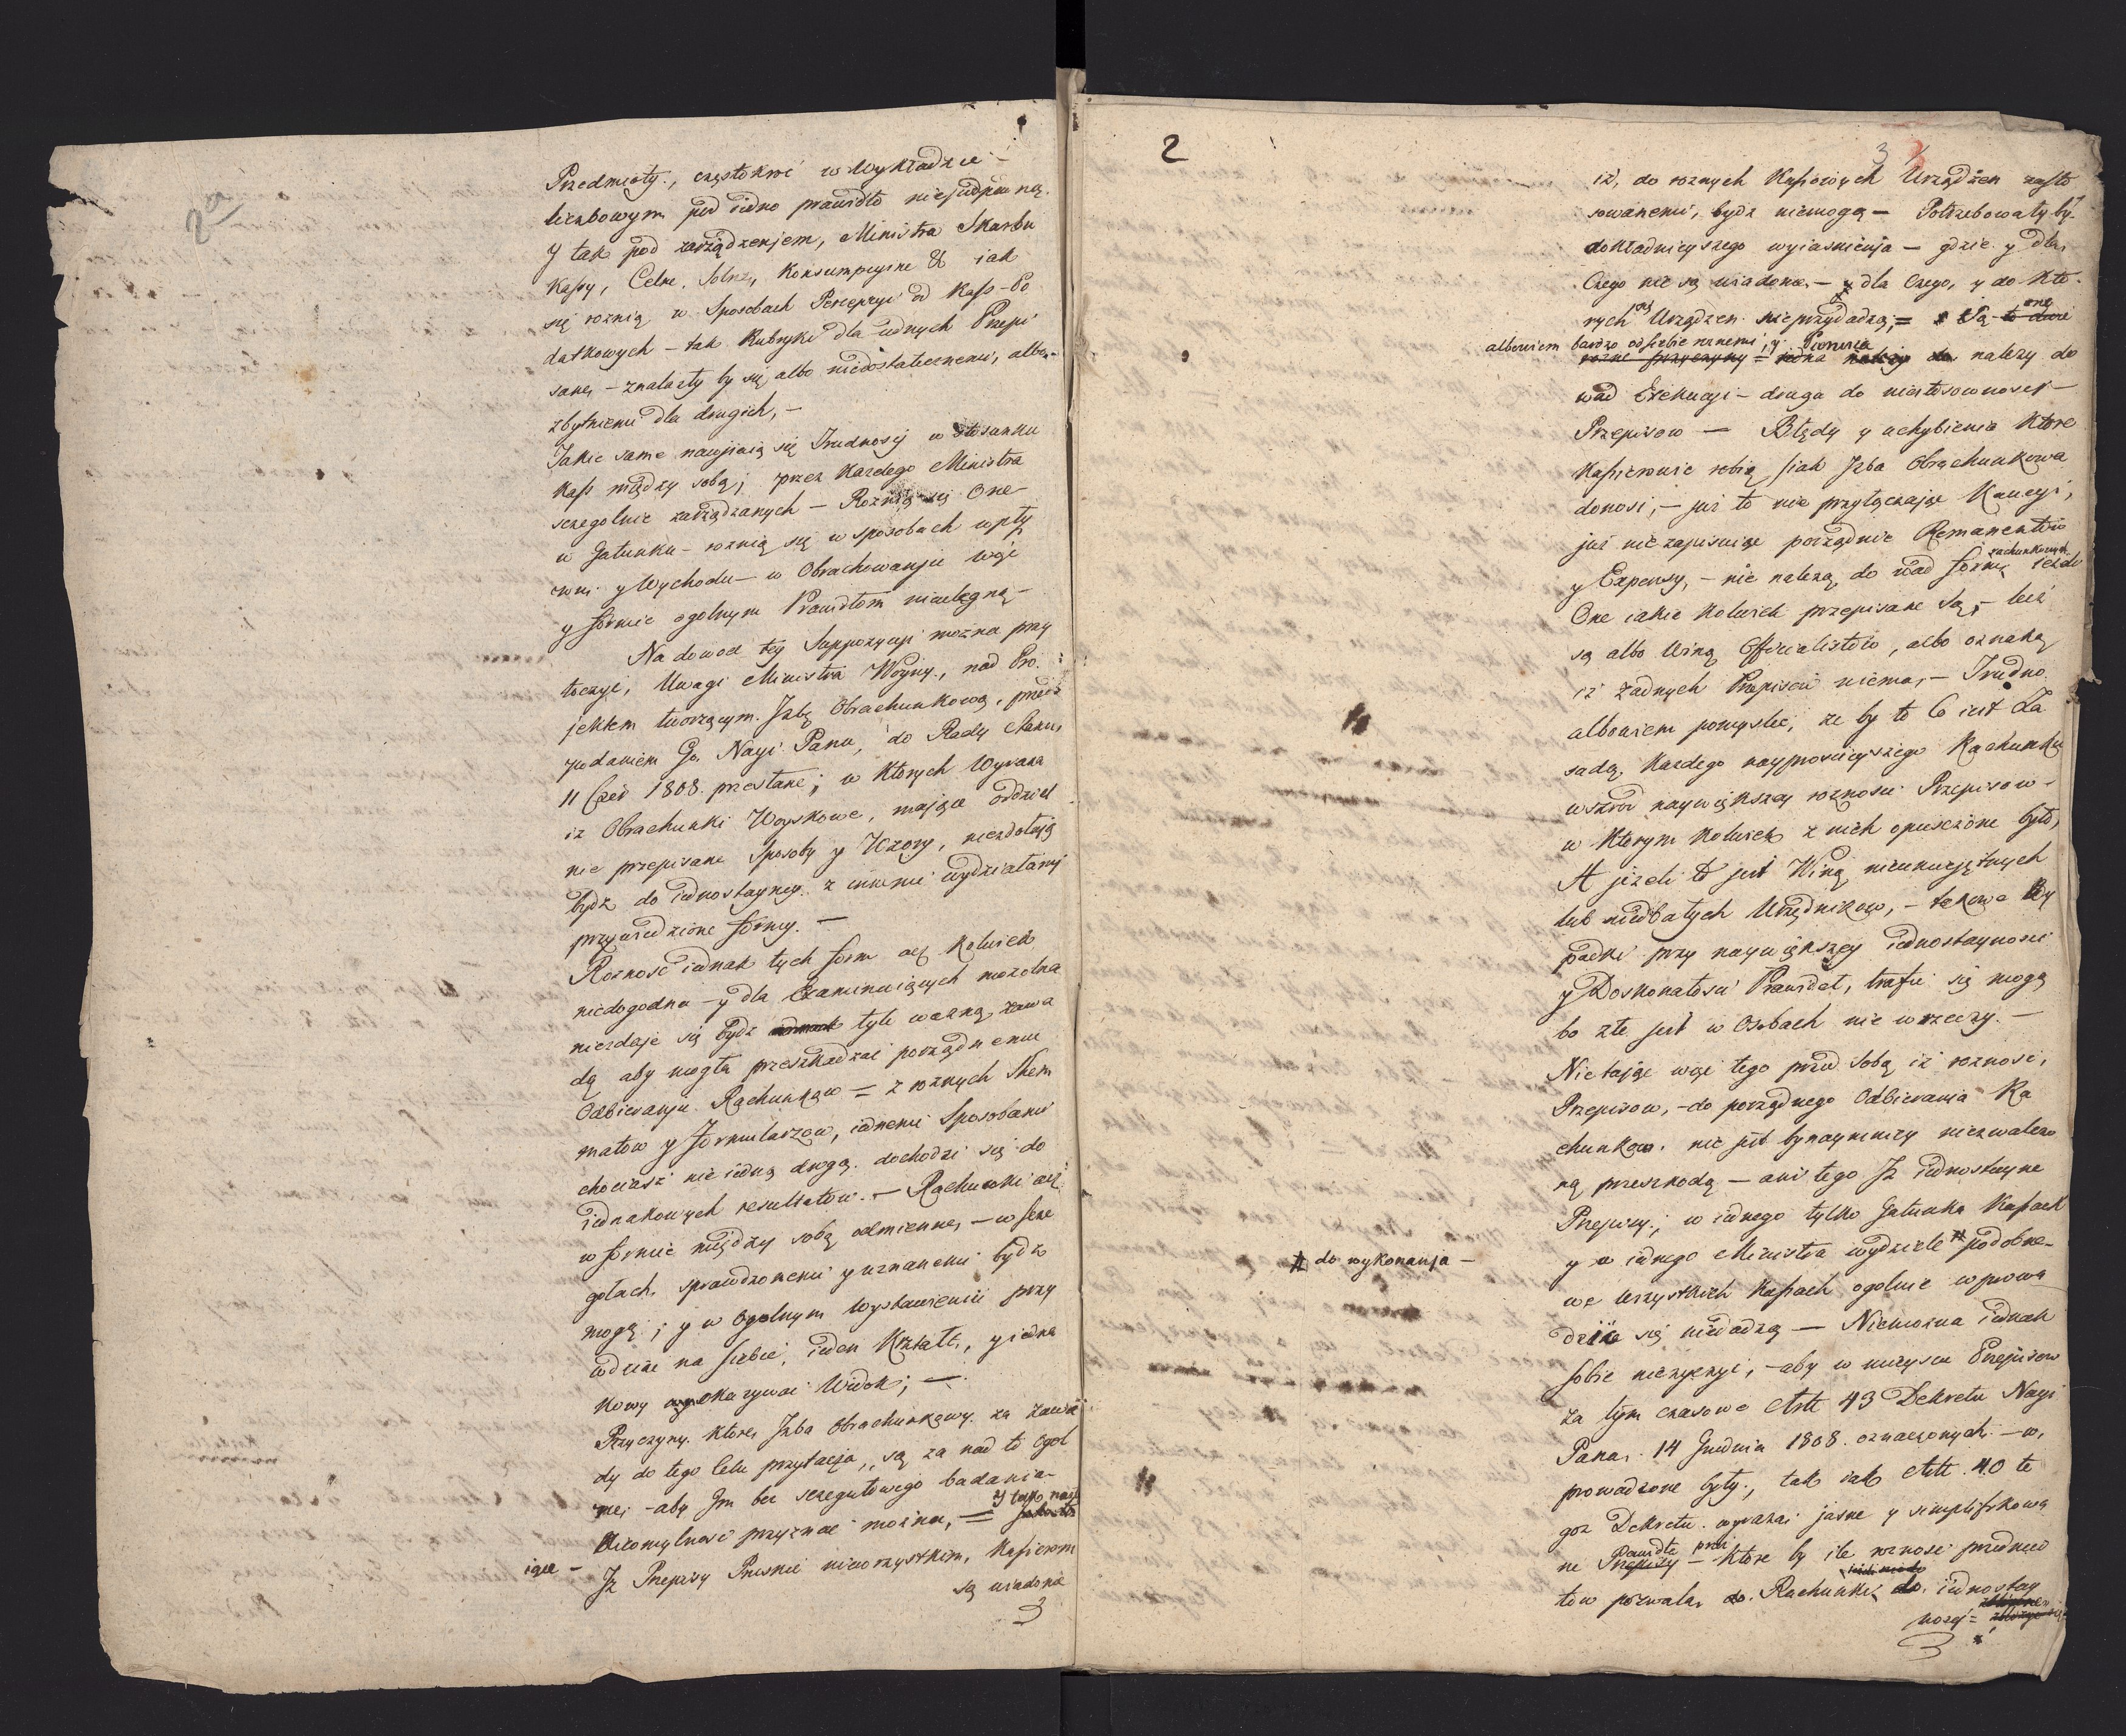 2a
Przedmioty, częstokroć w Wykładzie
liczbowym pod iedno prawidło niepodpadną
Y tak pod zarządzeniem, Ministra Skarbu
Kassy, Celne, Solne, Konsumpcyine & iak
się roznią w Sposobach Percepcyi od Kass-Po
datkowych – tak Rubryki dla iednych Przepi
sane, – znalazły by się albo niedostatecznemi, albo
zbytniemi dla drugich, –
Takie same nawiiaią się Trudnosci w stosunku
Kass między sobą; przez Kazdego Ministra
sczegolnie zarządzanych – Roznią się One
w Gatunku – roznią się w sposobach wpły
wu y Wychodu – w Obrachowaniu więc
y formie ogolnym Prawidłom nieulegną –
Na dowod tey Suppozycyi mozna przy
toczyć, Uwagi Ministra Woyny, nad Pro
jektem tworzącym Izbę Obrachunkową, przez
podaniem Go Nayi Panu, do Rady Stanu,
11 Czer 1808. przesłane; w Ktorych Wyraza
iz Obrachunki Woyskowe, maiące oddziel
nie przepisane Sposoby y Wzory, niezdołaią
bydz do iednostayney z innemi wydziałami
przywiedzione formy. –
Roznosc iednak tych form acz Kolwiek
niedogodna – y dla Examinuiących mozolna
niezdaje się bydz tyle wazną zawa
dą aby mogła przeszkadzać porządnemu
Odbieraniu Rachunkow = z roznych Skem
matow y Formularzow, iednemi Sposobami
chociasz nie iedną drogą dochodzi się do
iednakowych resultatow. – Rachunki acz
w formie między sobą odmienne, – w szcze
gołach, sprawdzonemi y uznanemi bydz
mogą; y w Ogolnym Wystawieniu przy
wdziac na siebie, ieden Kształt, y iedna
Kowy okazywac Widok; –
Przyczyny, Ktore, Izba Obrachunkowy za zawa
dy do tego Celu przytacza, są za nad to Ogol
ne, – aby Jm bez sczegułowego badania
Nieomylnosc przyznac mozna, = Y tak nay
iące – Iz Przepisy Pruskie niewszystkim, Kassierom
są wiadome
3
2
3
iż, do roznych Kassowych Urządzen zasto
sowanemi, bydz niemogą – Potrzebowały by
dokładnieyszego wyiasnienia – gdzie y dla
Czego nie są wiadome, – y dla Czego, y do Kto
rych Urządzen nieprzydadzą, = Są to dwie
albowiem bardzo od siebie roznemi, y Pierwsza
rozne przyczyny = iedna nalezy do nalezy do
wad Exekucyi – druga do niestosownosci
Przepisow – Błędy y uchybienia Ktore
Kassierowie robią iak Izba Obrachunkowa
donosi, – już to nie przyłączaiąc Kaucyi,
już niezapisuiąc porządnie Remanentow
y Expensy, – nie nalezą do wad formy rachunkowych
One iakie Kolwiek przepisane są, – lecz
są albo Winą Officialistow, albo oznaką
iż zadnych Przepisow niema, – Trudno
albowiem pomyslec, ze by to Co iest Za
sadą Kazdego nayprosciyszego Rachunku
wszrod naywiększey roznosci Przepisow
w Ktorym Kolwiek z nich opusczone było,
A jezeli to jest Winą nieumieiętnych
lub niedbałych Urzędnikow, – takowe Wy
padki przy naywiększey iednostaynosci
y Doskonałosci Prawideł, trafic się mogą
bo złe jest w Osobach nie w rzeczy. –
Nietając więc tego przed Sobą iż roznosc,
Przepisow, – do porządnego Odbierania Ra
chunkow nie jest bynaymniey niezwalczo
ną przeszkodą – ani tego Iz iednostayne
Przepisy, w iednego tylko Gatunku Kassach
y w iednego Ministra wydziele # podobne
# do wykonania –
we wszystkich Kassach ogolnie wprowa
dzic się niedadzą – Niemozna iednak
sobie nieżyczyć, – aby w mieysce Przepisow
za tym czasowo Artt 43 Dekretu Nayi
Pana, 14 Grudnia 1808. oznaczonych – w,
prowadzone były, tak iak Artt. 40 te
goz Dekretu wyrazai jasne y simplifikowa
ne Prawidła przez Przepisy – Ktore by ile roznosc przedmio
tow pozwala, do Rachunki, do iednostay
nosci =
3